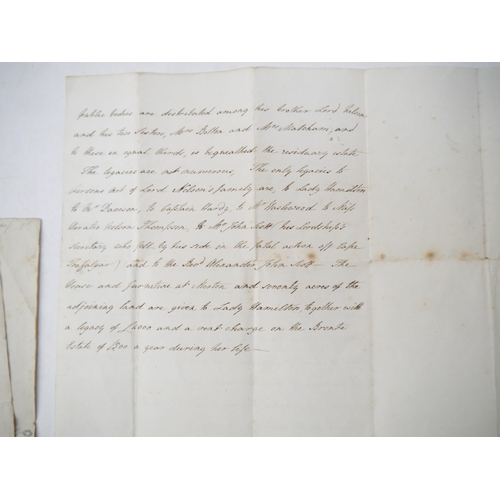 public bodies are distributed among his brother Lord Nelson
and his two Sisters, Mrs Bolton and Mrs Matcham, and
to these in equal thirds, is bequeathed the residuary estate
The legacies are not numerous, The only legacies to
persons out of Lord Nelson's family are, to Lady Hamilton
to Mr Davison, to Captain Hardy, to Mr Haslewood to Miss
Horatia Nelson Thompson, to Mr John Scott (his lordship's
Secretary who fell by his side in the fatal action off Cape
Trafalgar) and to the Revd Alexander John Scott — The
House and furniture at Merton and seventy acres of the
adjoining land are given to Lady Hamilton together with
a legacy of and a rent charge on the Bronte
Estate of £500 a year during her life —